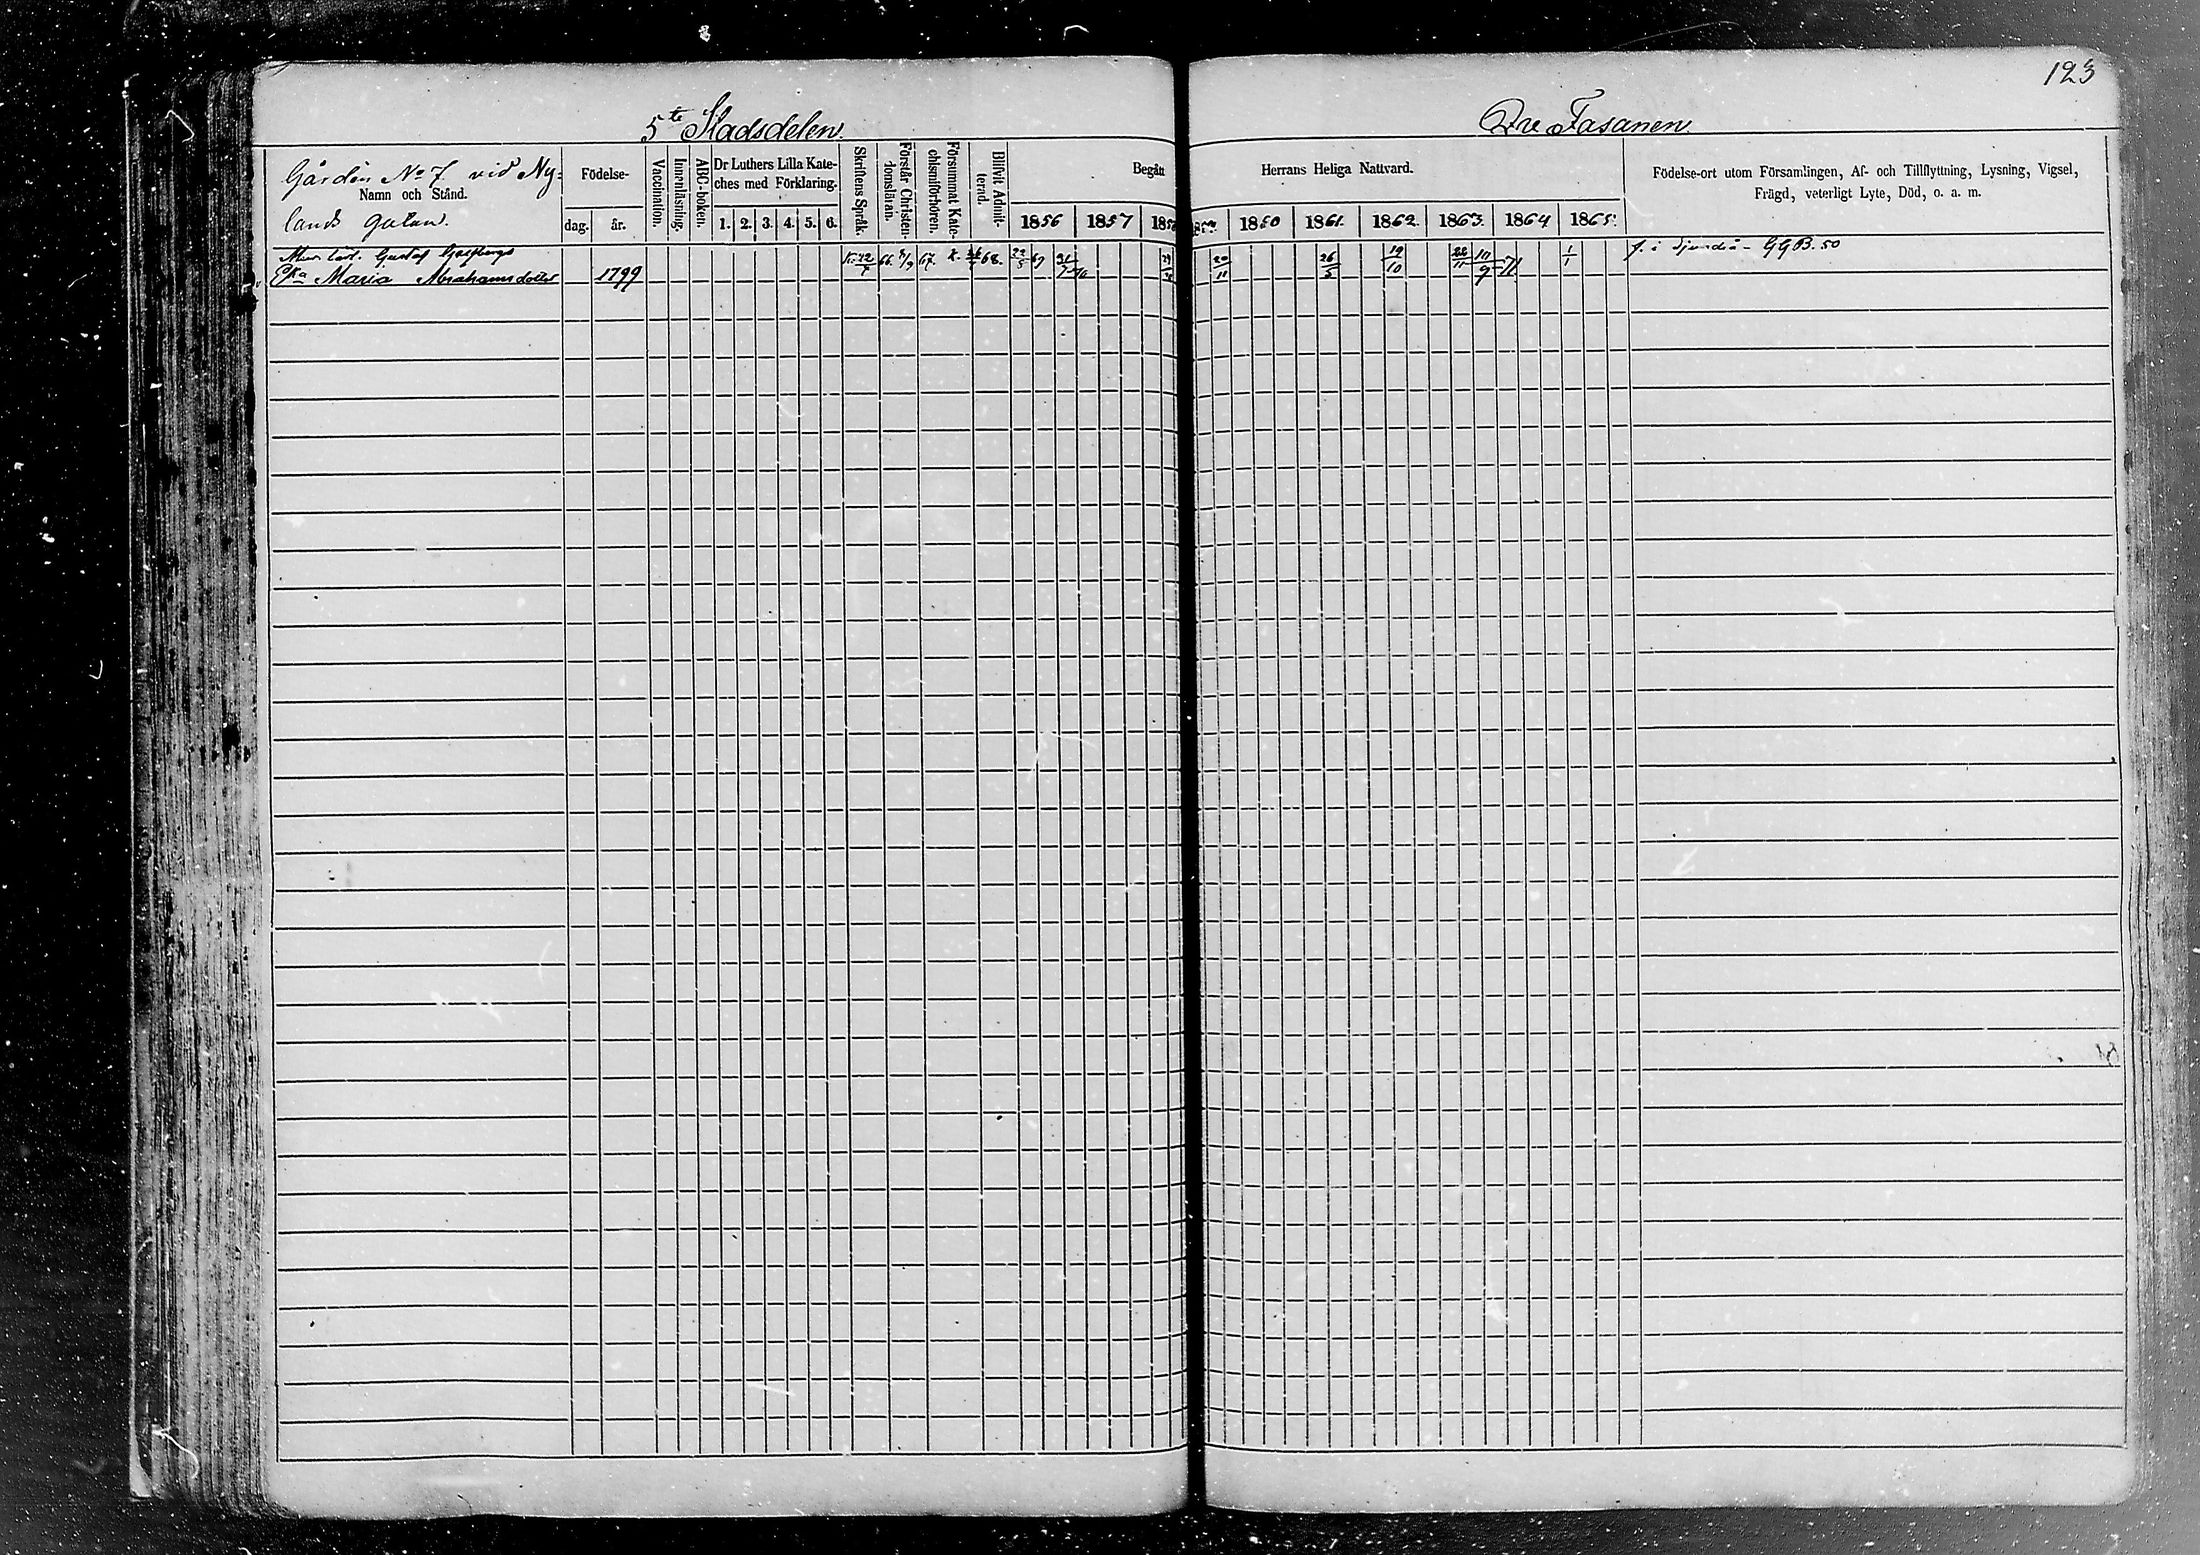 123
5te Stadsdelen.
Qre Fasanen
Gården No 7 vid Ny-
Namn och Stånd.
lands gatan.
Födelse-
dag. år.
Vaccination.
Innanläsning.
ABC-boken.
Dr Luthers Lilla Kate-
ches med Förklaring.
1. 2. 3. 4. 5. 6.
Skriftens Språk.
Förstår Christen-
domsläran.
Försummat Kate-
chismiförhören.
Blifvit Admit-
terad.
Begått Herrans Heliga Nattvard.
1856 1857 1850 1861. 1862. 1863. 1864 1865.
Födelse-ort utom Församlingen, Af- och Tillflyttning, Lysning, Vigsel,
Frägd, veterligt Lyte, Död, o. a. m.
Gustaf
f. i Sjundeå - GGB. 50
Eka Maria Abrahamsdotter 1799
22/5 69 20/11 26/5 19/10 22/11 10/9 71 1/1